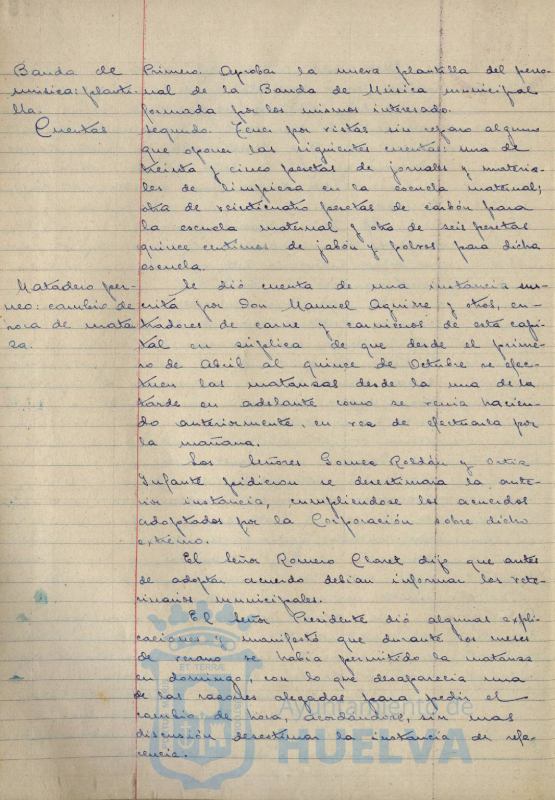 Banda de
música: planti-
lla.
Primero. Aprobar la nueva plantilla del perso-
nal de la Banda de Música municipal
formada por los mismos interesado.
Cuentas
Segundo. Tener por vistas sin reparo alguno
que oponer las siguientes cuentas: una de
treinta y cinco pesetas de jornales y materia-
les de limpieza en la escuela maternal;
otra de veinticuatro pesetas de carbón para
la escuela maternal y otra de seis pesetas
quince centimos de jabón y polvos para dicha
escuela.
Matadero per-
neo: cambio de
hora de matan-
za.
Se dió cuenta de una instáncia sus-
crita por Don Manuel Aguirre y otros, en-
tradores de carne y carniceros de esta capi-
tal en súplica de que desde el prime-
ro de Abril al quince de Octubre se efec-
tuen las matanzas desde la una de la
tarde en adelante como se venia hacien-
do anteriormente, en vez de efectuarla por
la mañana.
Los Señores Gomez Roldán y Ortiz
Infante pidieron se desestimara la ante-
rior instáncia, cumpliendose los acuerdos
adoptados por la Corporación sobre dicho
extremo.
El Señor Romero Claret dijo que antes
de adoptar acuerdo debian informar los vete-
rinarios municipales.
El Señor Presidente dió algunas expli-
caciones y manifestó que durante los meses
de verano se habia permitido la matanza
en domingo, con lo que desaparecia una
de las razones alegadas para pedir el
cambio de hora, acordándose, sin mas
discusión desestimar la instáncia de refe-
rencia.
ET TERRÆ
Ayuntamiento de
HUELVA